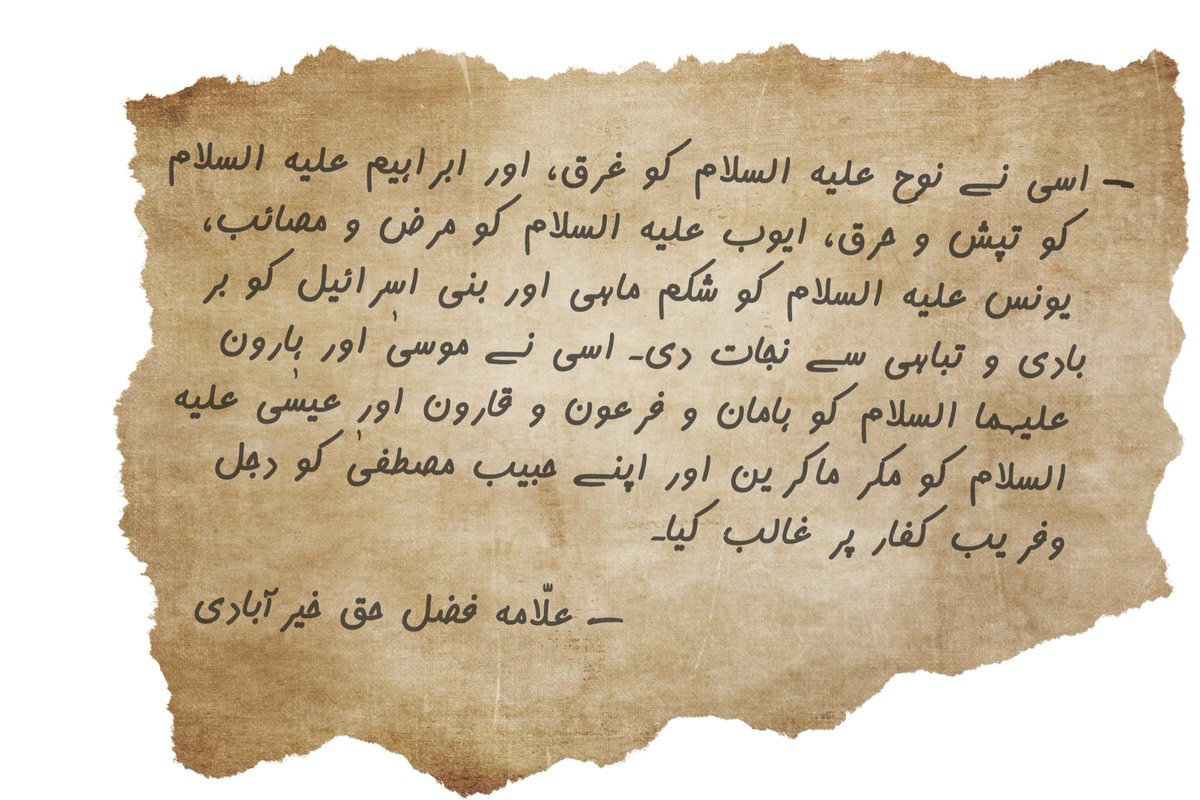 — اسی نے نوح علیہ السلام کو غرق، اور ابراہیم علیہ السلام
کو تپش و حرق، ایوب علیہ السلام کو مرض و مصائب،
یونس علیہ السلام کو شکم ماہی اور بنی اسرائیل کو بر
بادی و تباہی سے نجات دی۔ اسی نے موسیٰ اور ہارون
علیہما السلام کو ہامان و فرعون و قارون اور عیسیٰ علیہ
السلام کو مکر ماکرین اور اپنے حبیب مصطفیٰ کو دجل
وفریب کفار پر غالب کیا۔
— علّامہ فضل حق خیرآبادی